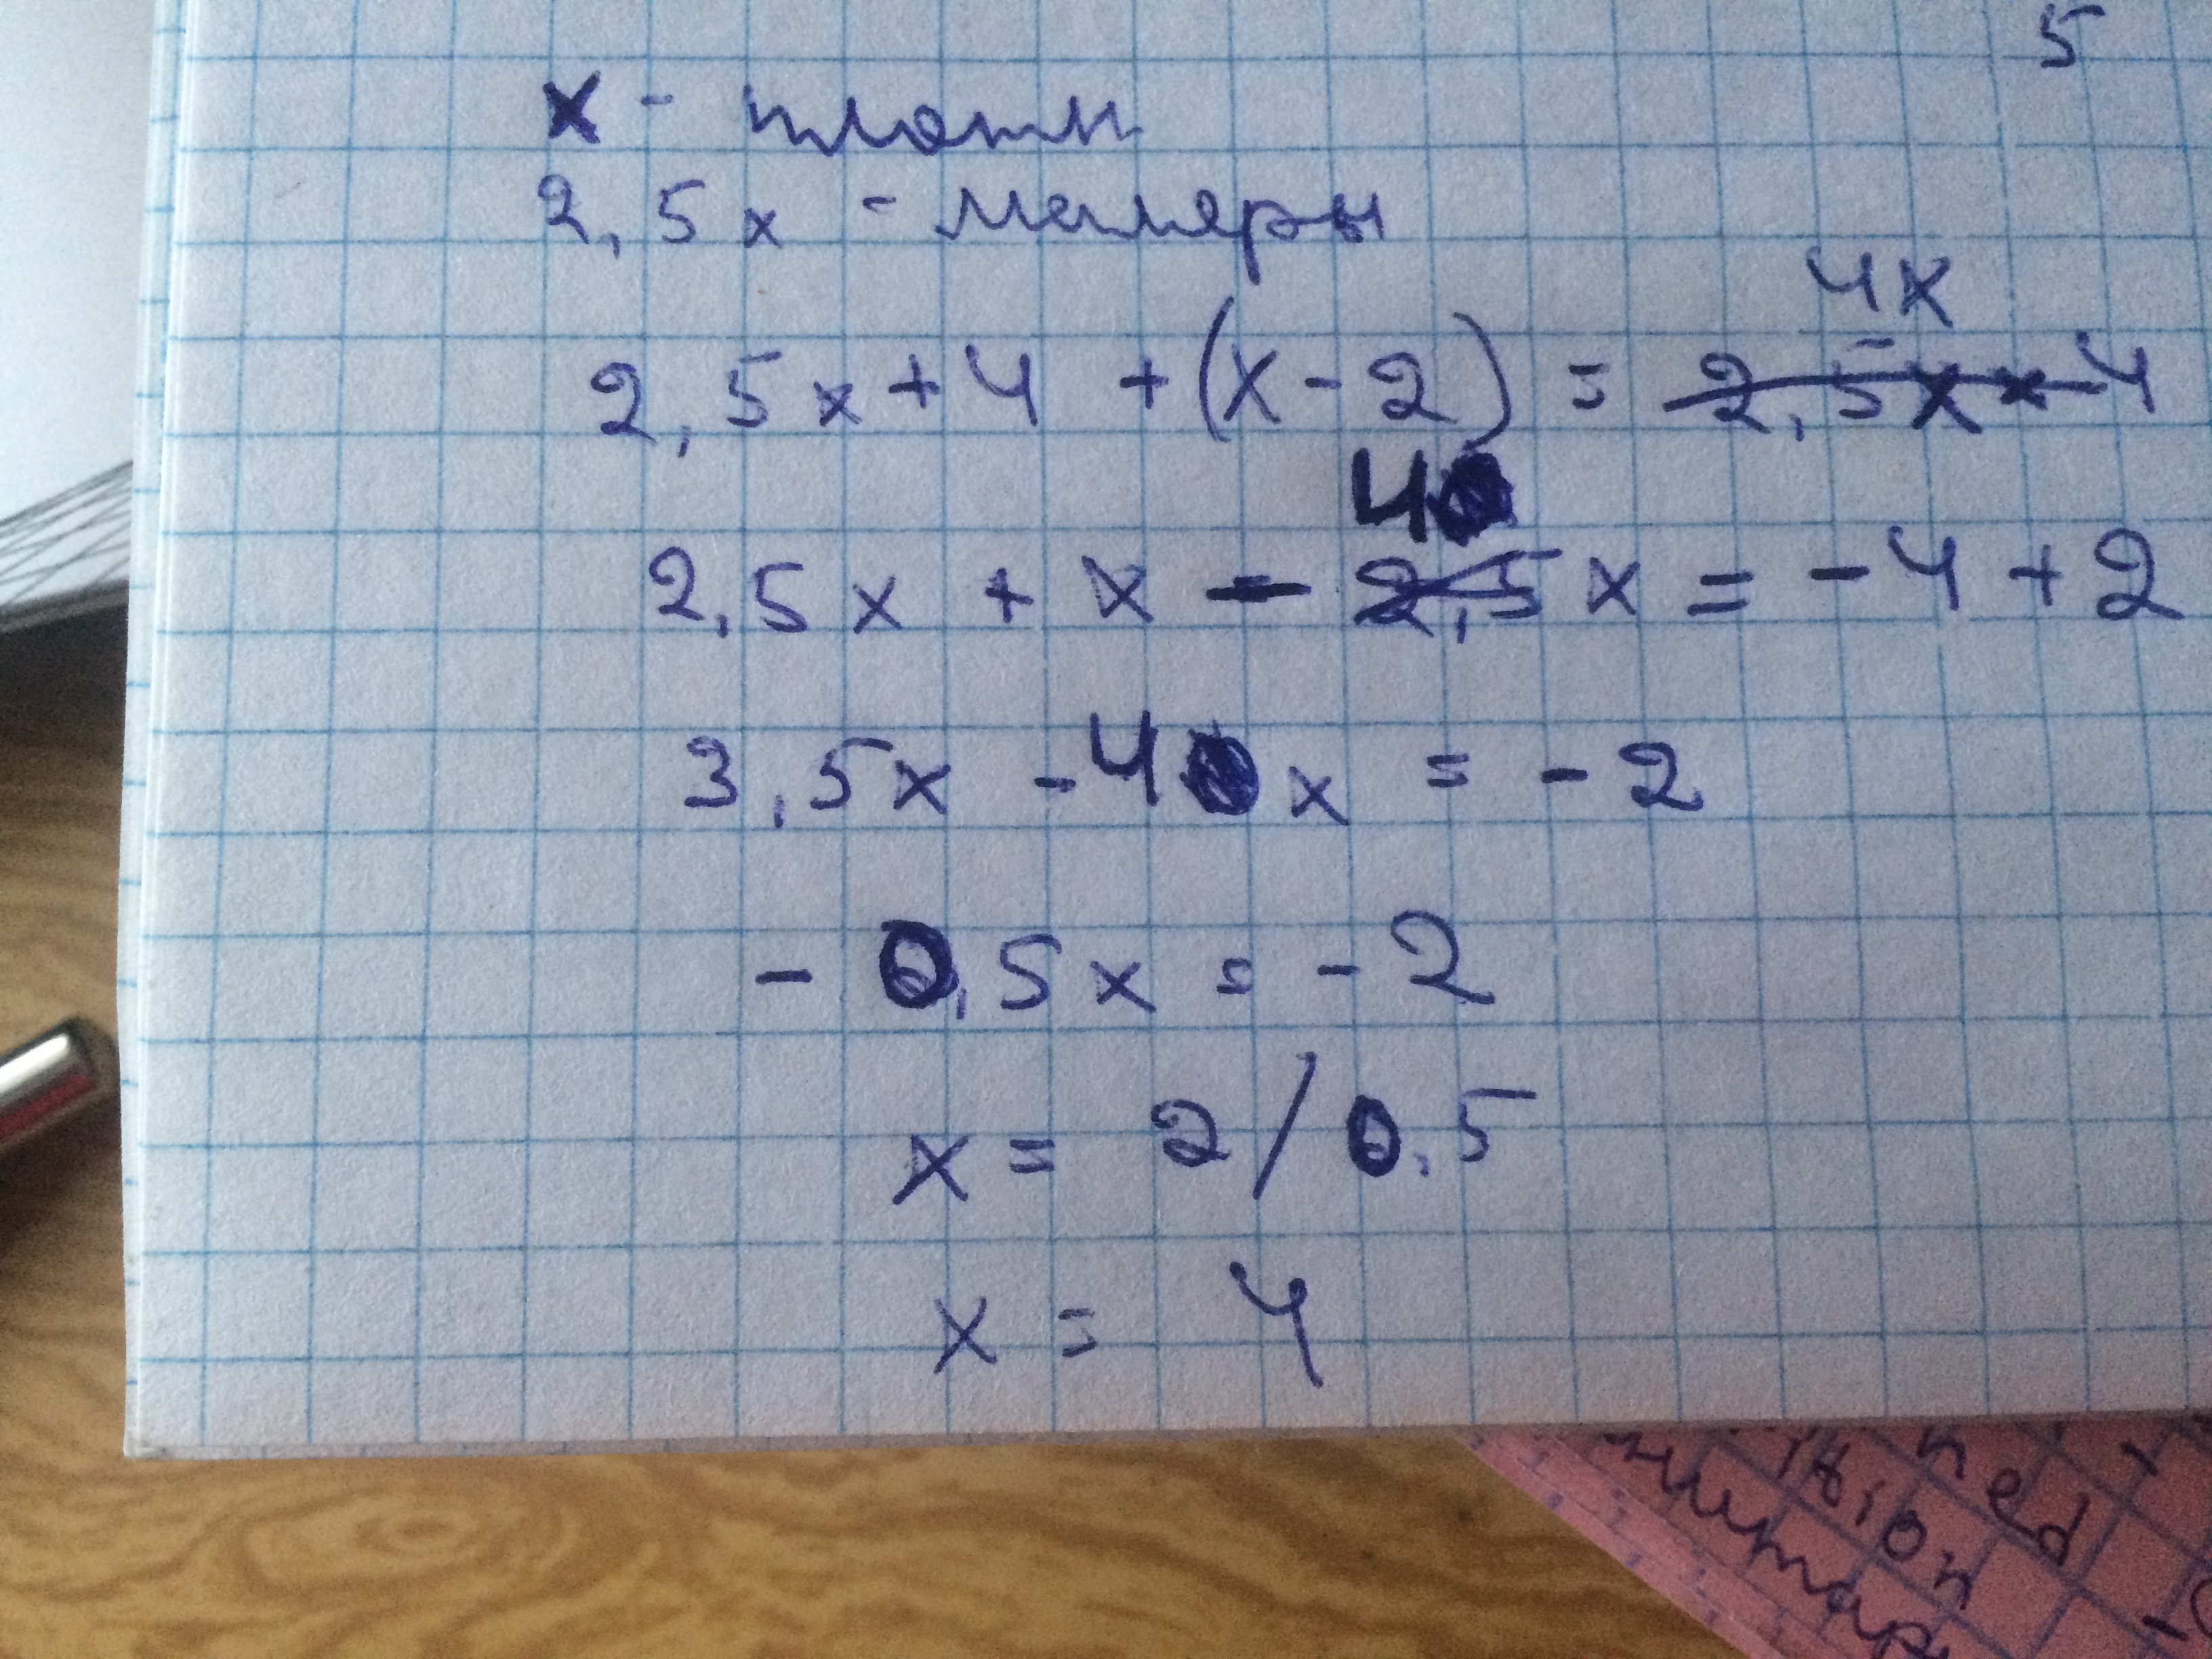 5
x - плотн
2,5x - маляры
4x
2,5x + 4 + (x - 2) = 2,5x x 4
4
2,5x + x - 2,5x = -4 + 2
3,5x - 4x = -2
- 0,5x = -2
x = 2/0,5
x = 4
ned
ition